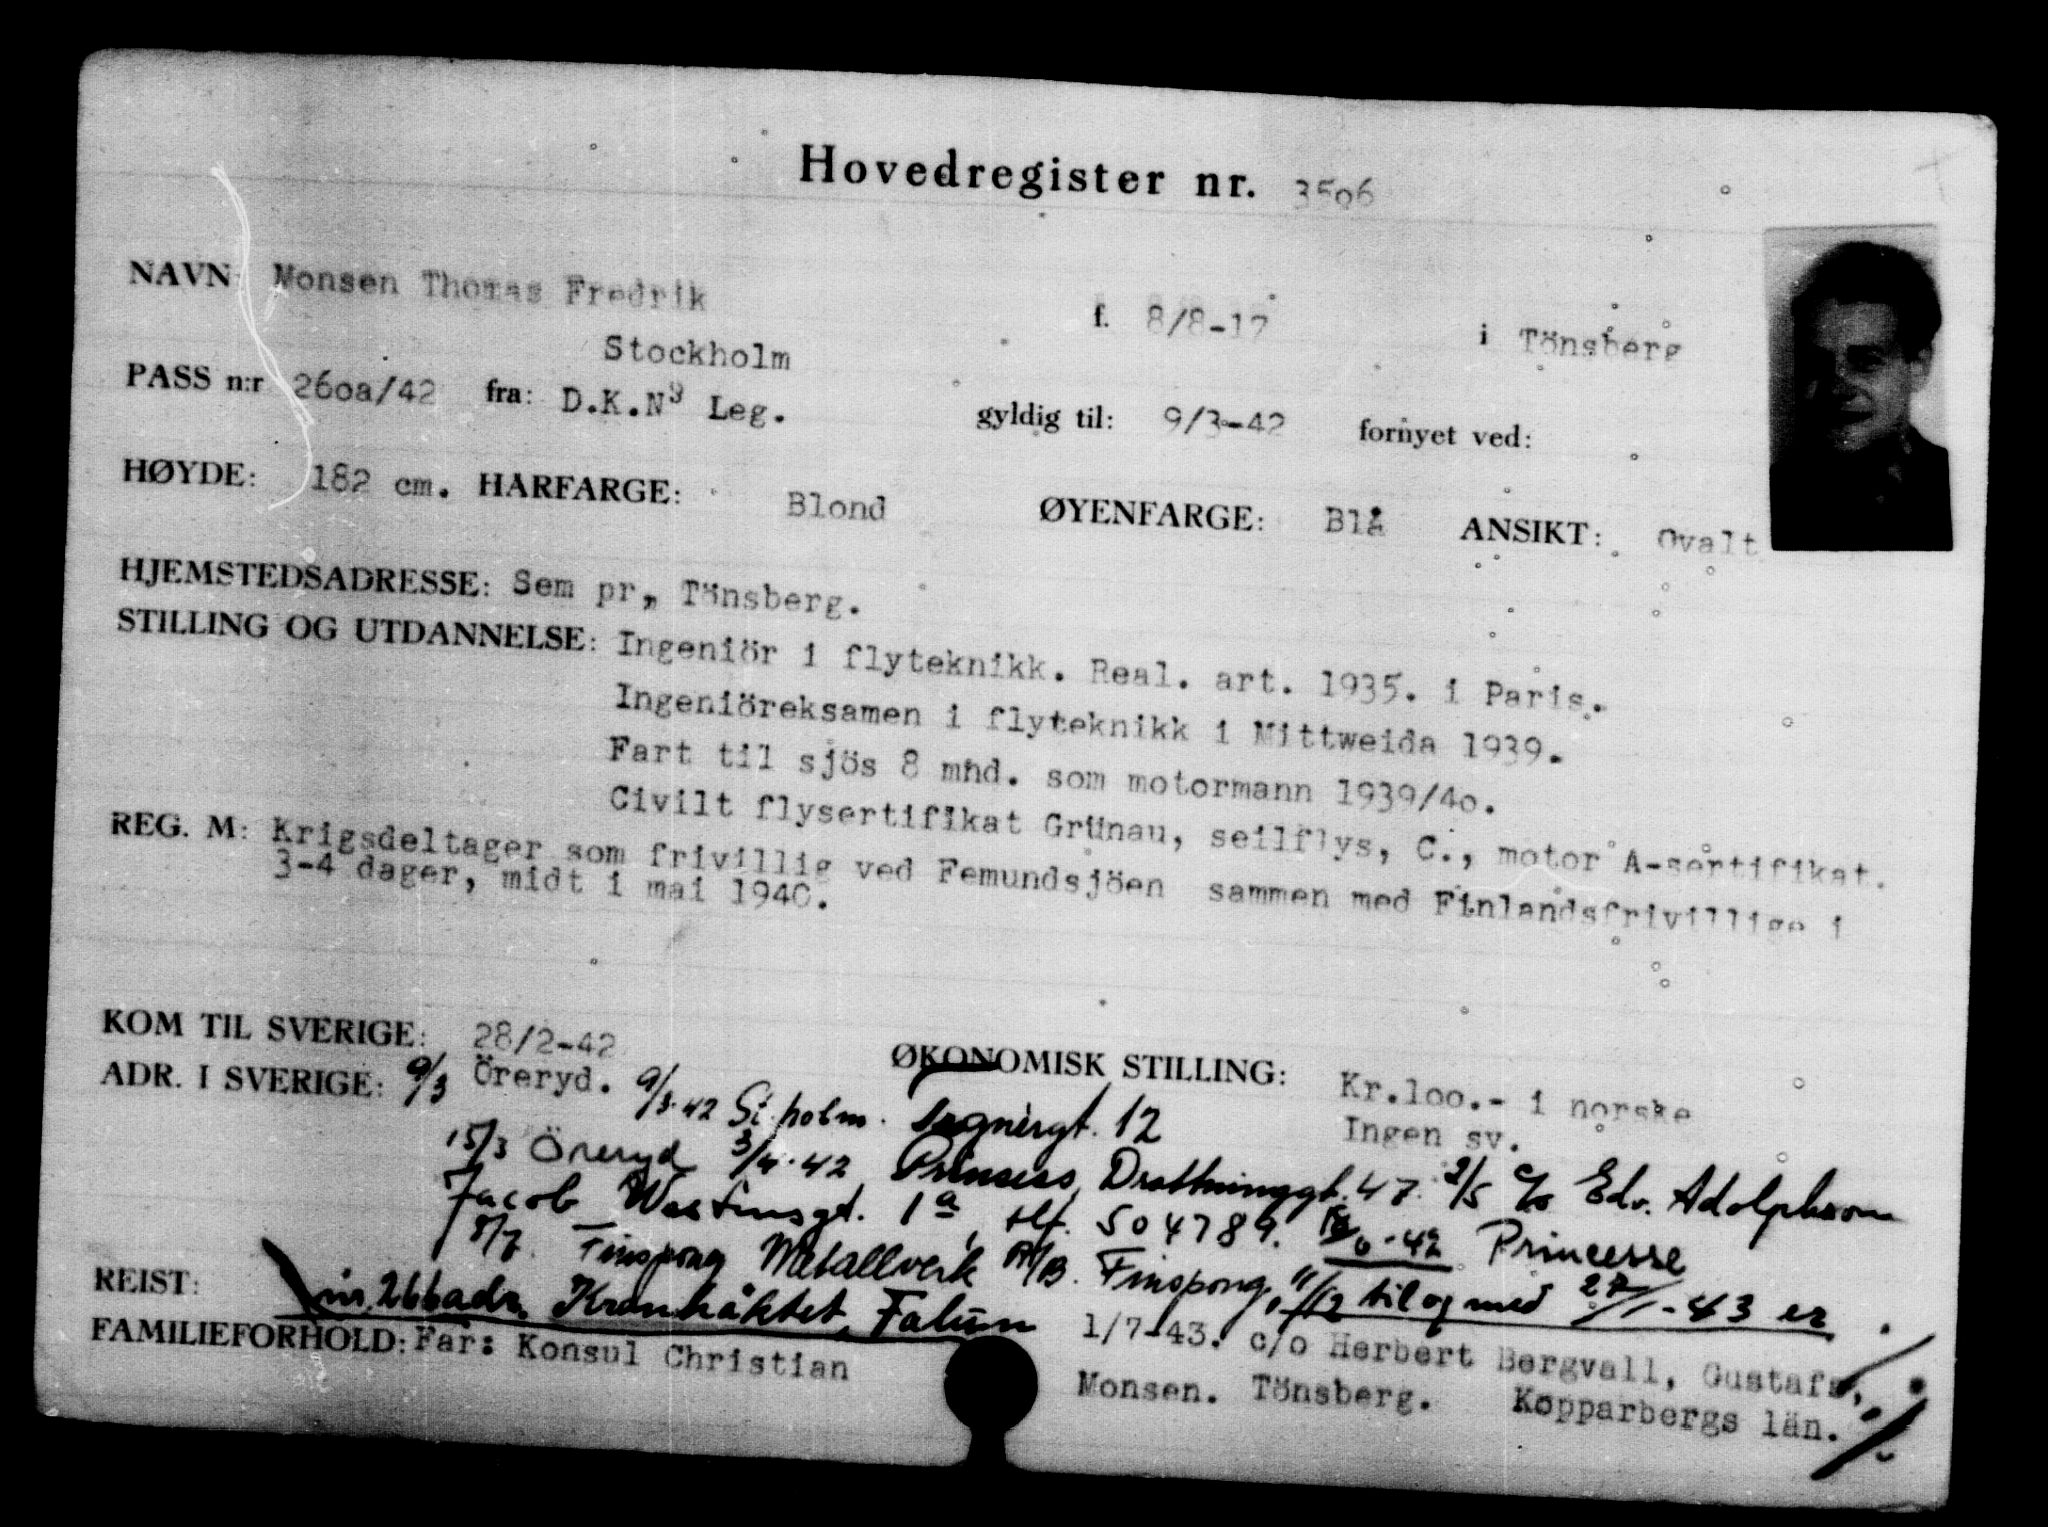 Hovedregister nr. 3506
NAVN: Monsen Thomas Fredrik f. 8/8-17 i Tönsberg
Stockholm
PASS n:r 260a/42 fra: D.K.N. Leg. gyldig til: 9/3-42 fornyet ved:
HØYDE: 182 cm. HARFARGE: Blond ØYENFARGE: Blå ANSIKT: Ovalt
HJEMSTEDSADRESSE: Sem pr. Tönsberg.
STILLING OG UTDANNELSE: Ingeniör i flyteknikk. Real. art. 1935. i Paris.
Ingeniöreksamen i flyteknikk i Mittweida 1939.
Fart til sjös 8 mnd. som motormann 1939/40.
Civilt flysertifikat Grünau, seilflys, C., motor A-sertifikat.
REG. M: Krigsdeltager som frivillig ved Femundsjöen sammen med Finlandsfrivillige i
3-4 dager, midt i mai 1940.
KOM TIL SVERIGE: 28/2-42
ØKONOMISK STILLING: Kr.100.- i norske
Ingen sv.
ADR. I SVERIGE: 9/3 Öreryd. 9/3.42 St.holm. 12
15/3 Öreryd 3/4.42 Prinsess, Drottninggt. 47. 2/5 c/o Edv. Adolphson
Jacob Westinsgt. 1a, tlf. 504789. -42 Princesse
8/7. Finspong Metallverk A/B. Finspong, 11/12 til og med 27/1-43 er
REIST: nr. 266 adr. Kronhäktet, Falun
1/7-43. c/o Herbert Bergvall, Gustafs,
Kopparbergs län.
FAMILIEFORHOLD: Far: Konsul Christian Monsen. Tönsberg.